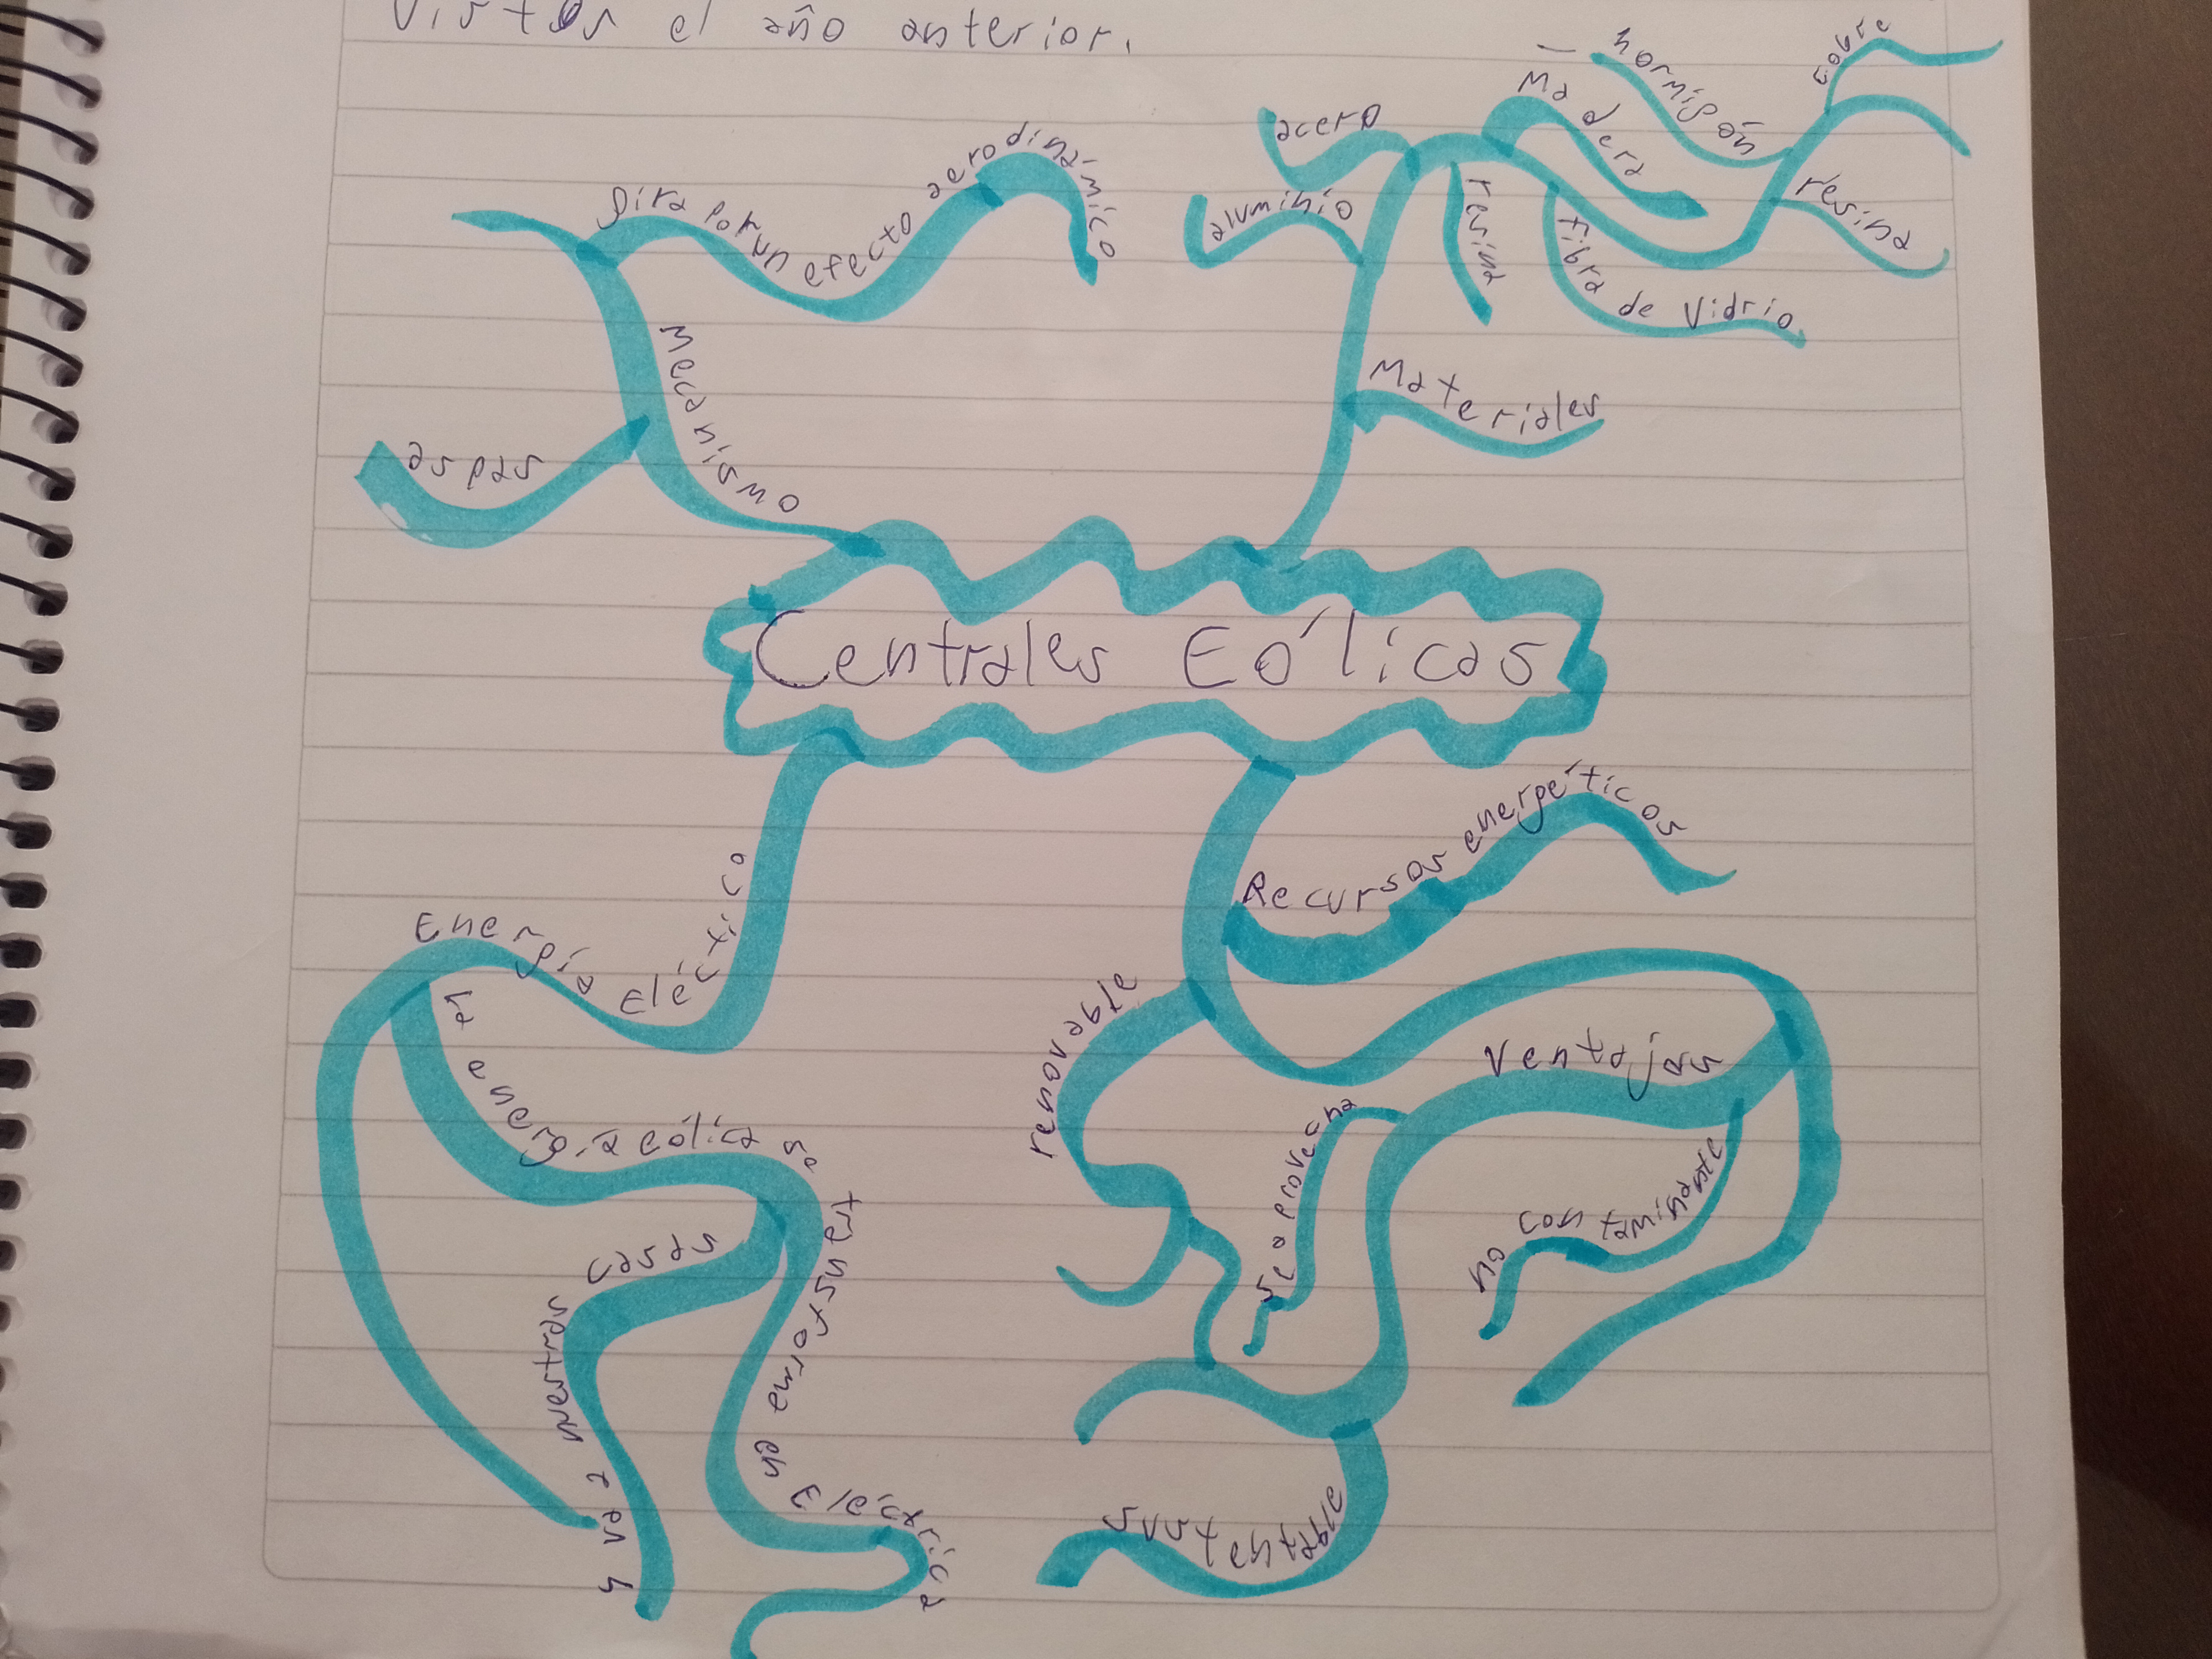 Vistos el año anterior.
Centrales Eólicas
Mecanismo
gira por un efecto aerodinámico
aspas
Materiales
aluminio
acero
resina
Madera
fibra de Vidrio
hormigón
cobre
resina
Energía Eléctico
la energia eólica se transforma en Eléctrica
y va a nuestras casas
Recursos energéticos
renovable
Ventajas
no contaminante
se aprovecha
sustentable